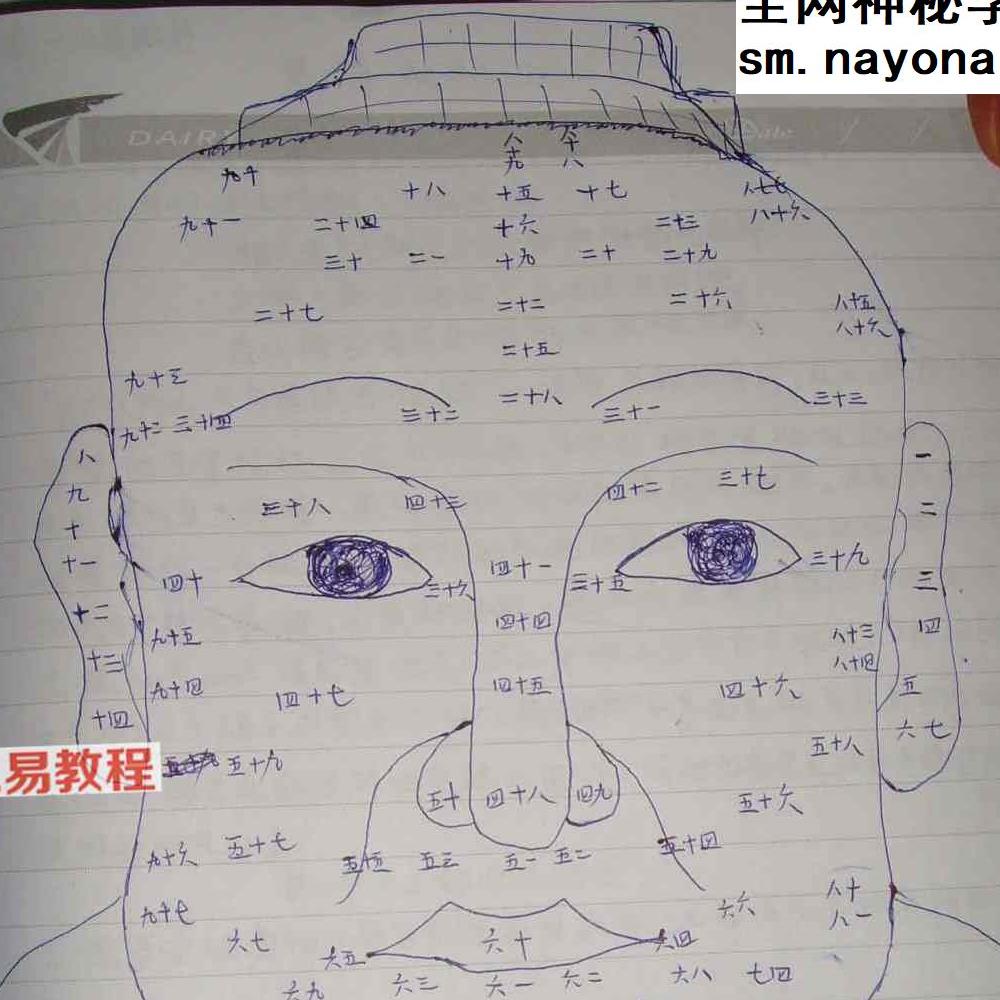 sm.nayona
DAIR
八十九 八十八
九十 十八 十五 十七 八七
九十一 二十四 十六 二十三 八十六
三十 二一 十九 二十 二十九
二十七 二十二 二十六 八十五
八十六
二十五
九十三 二十八
九十二 三十四 三十二 三十一 三十三
八 一
九 三十八 四十三 四十二 三十七 二
十
十一 四十 三十六 四十一 三十五 三十九 三
十二 四十四 四
九十五 八十三
十三 八十四
九十四 四十七 四十五 四十六 五
十四 六 七
易教程 五十九 五十八
五十 四十八 四九 五十六
九十六 五十七 五十五 五三 五一 五二 五十四
九十七 六六 八十
八一
六七 六五 六十 六四
六九 六三 六一 六二 六八 七四